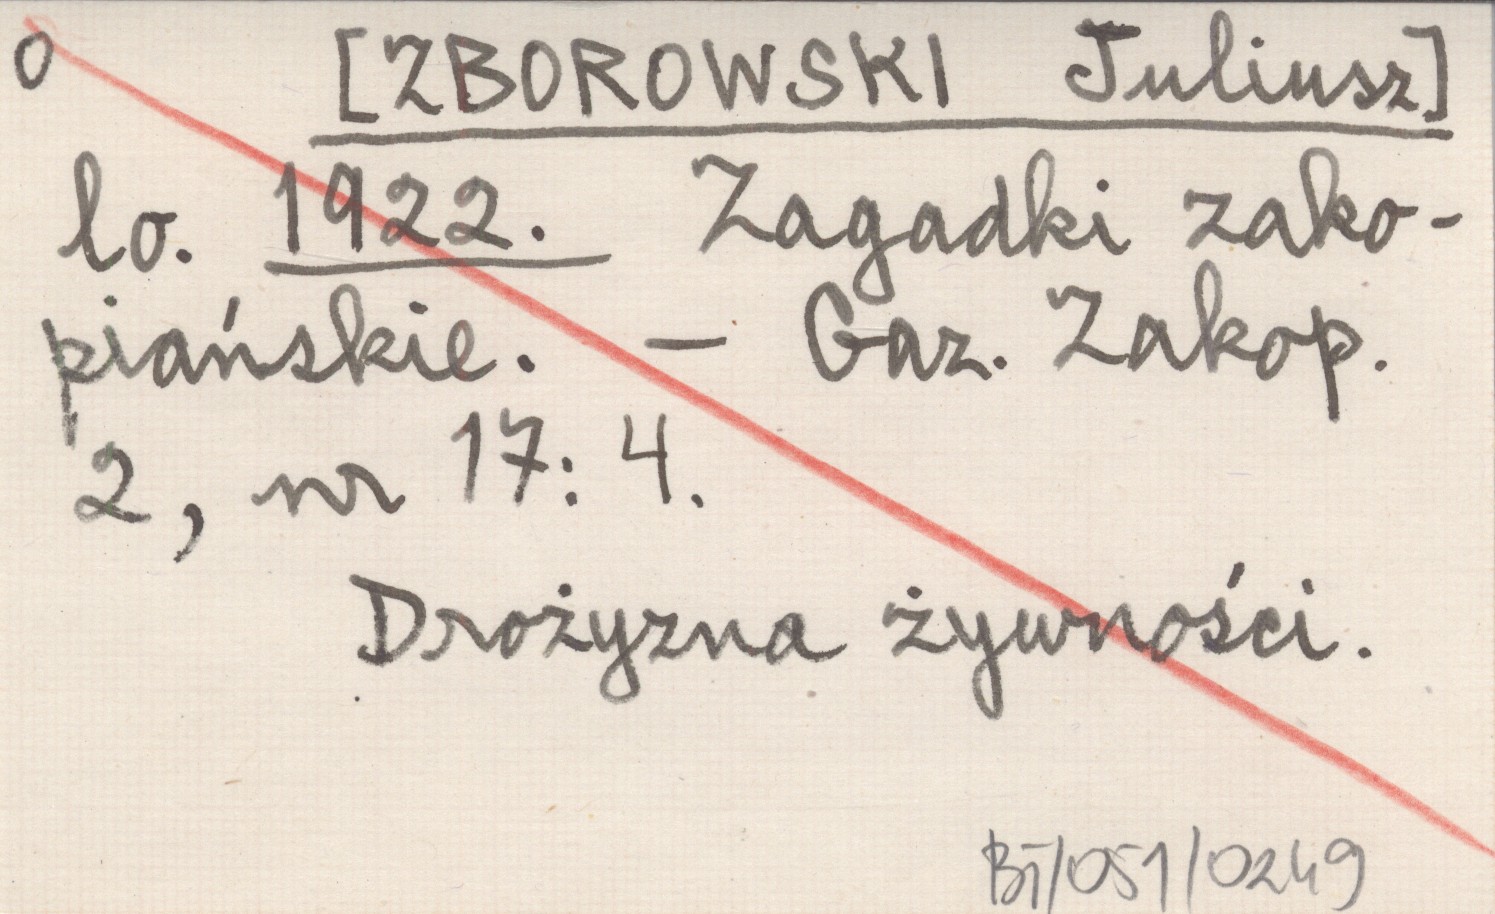 o [ZBOROWSKI Juliusz]
lo. 1922. Zagadki zako-
piańskie. — Gaz. Zakop.
2, nr 17: 4.
Drożyzna żywności.
BT/051/0249